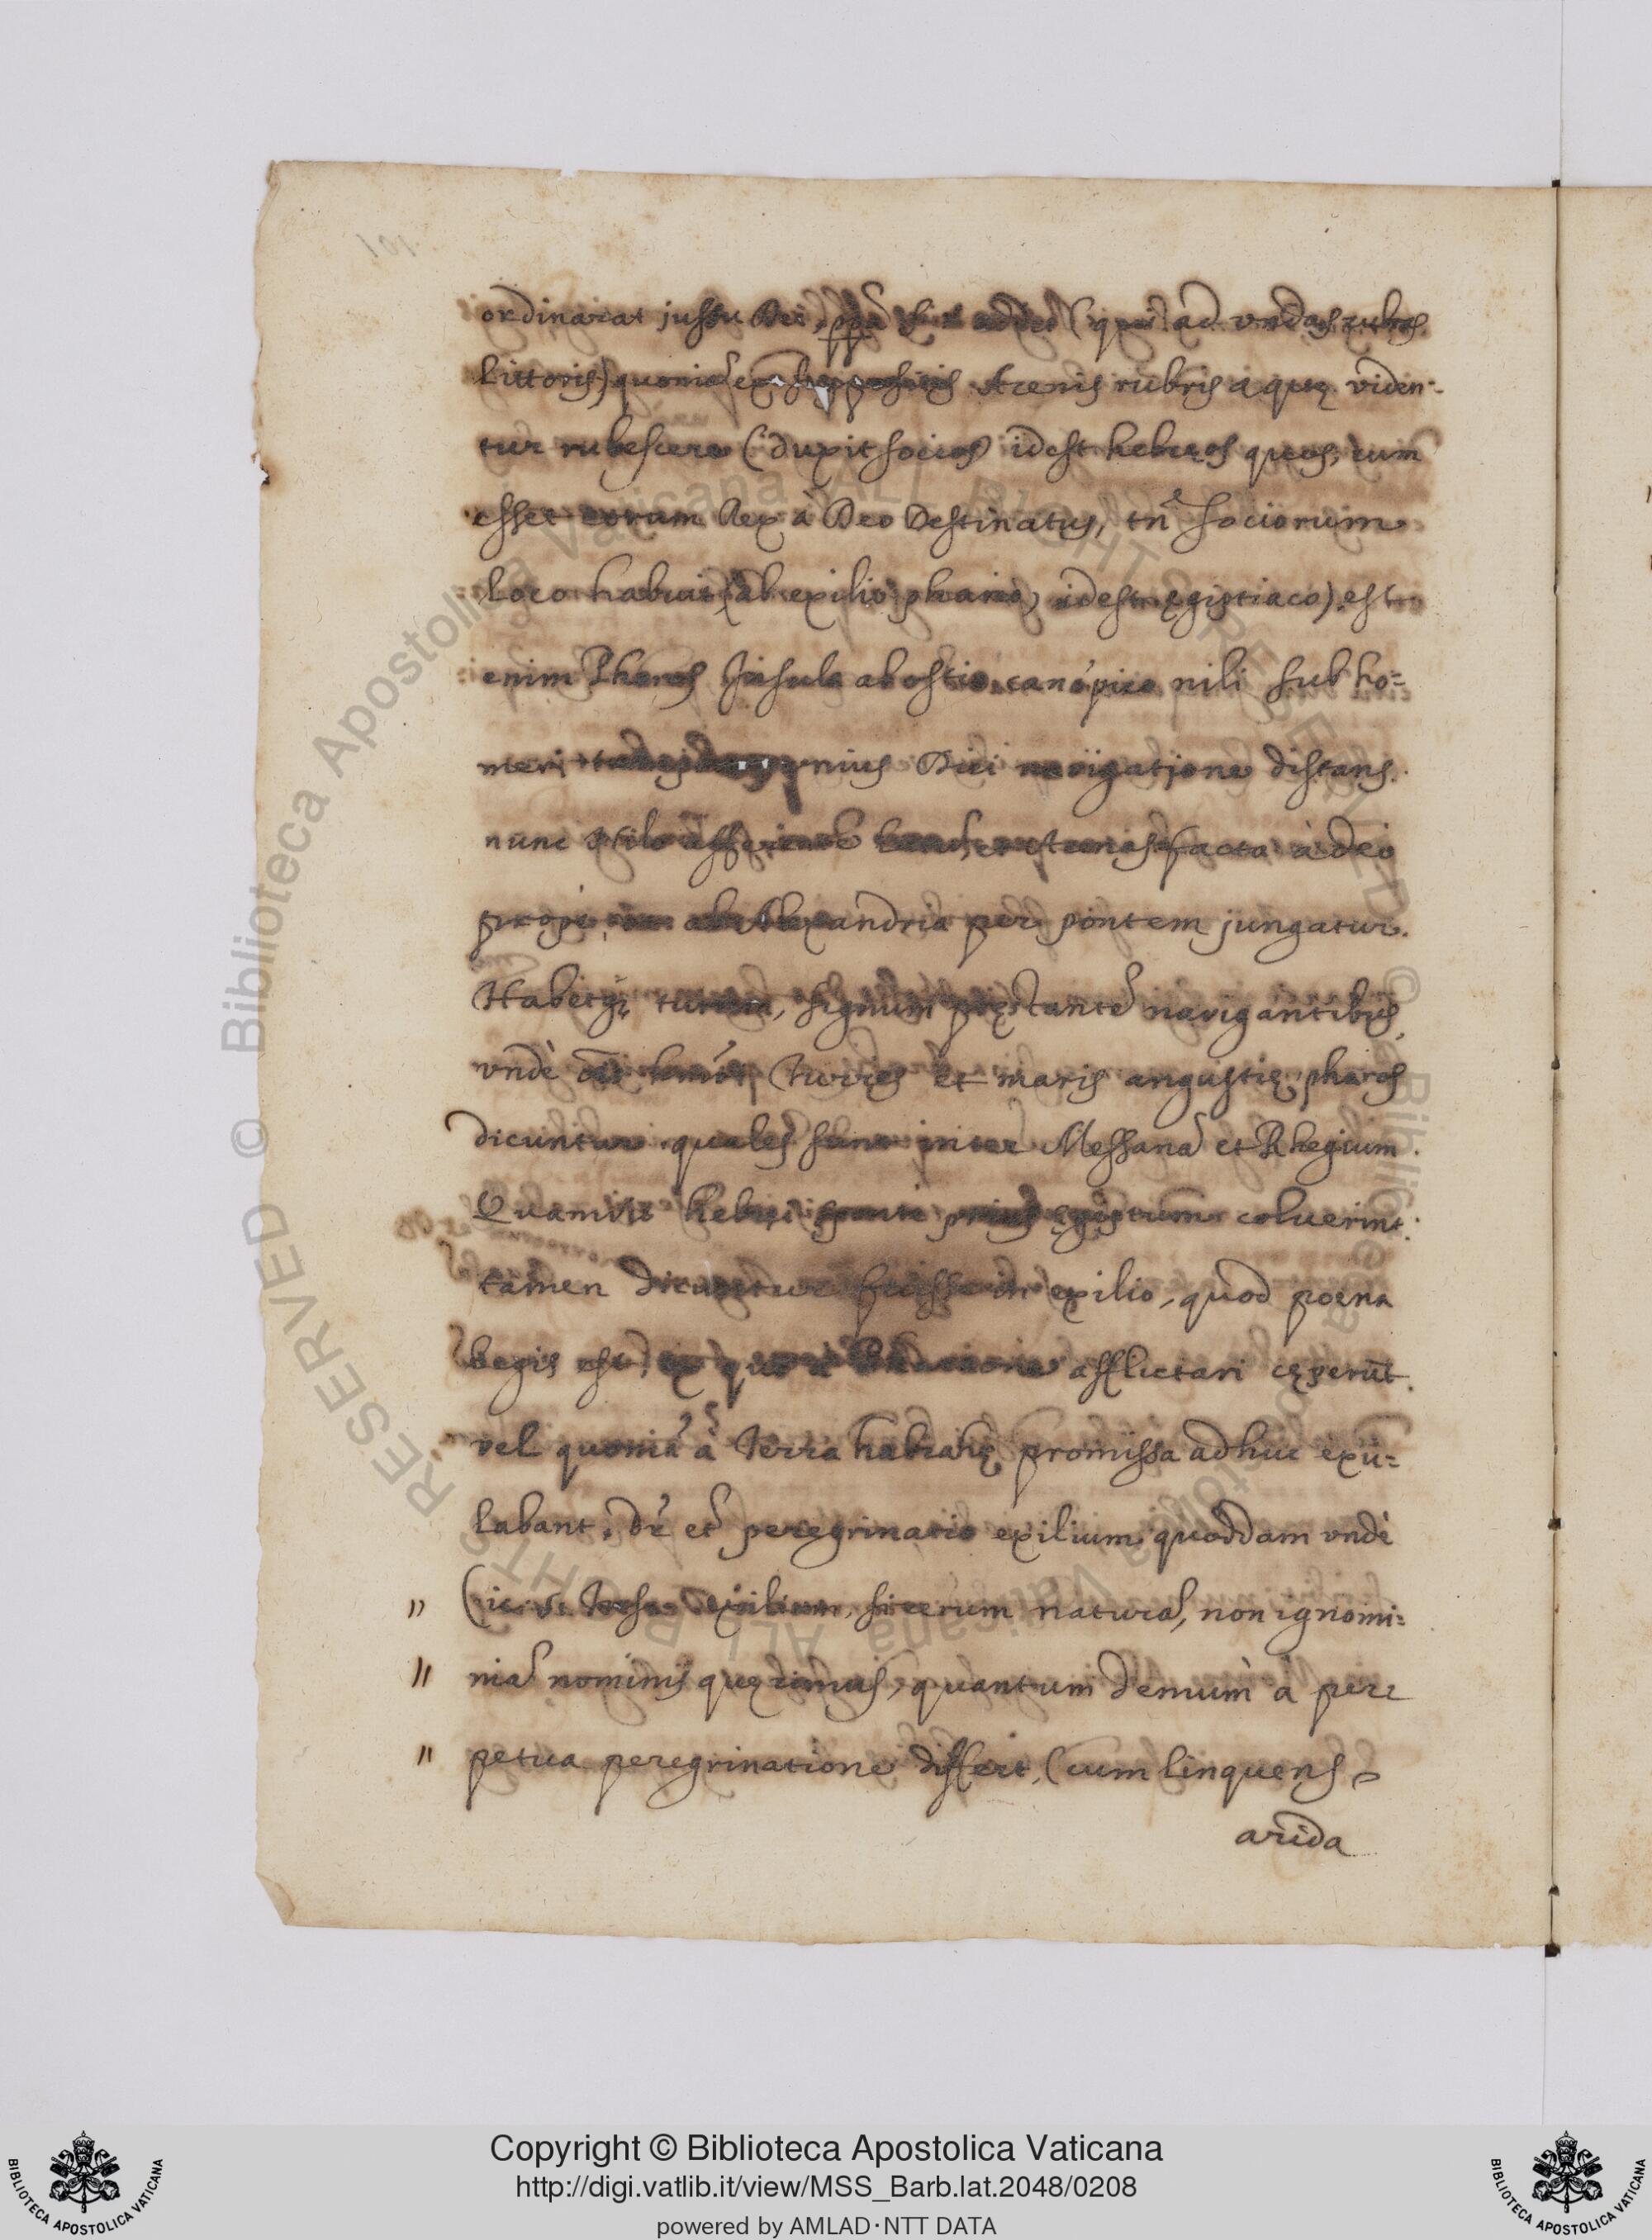 ordinarat jussu Dei, ad undas rubri
littoris) quoniã ex suppositis Arenis rubris aquę viden=
tur rubescere (duxit socios) idest hebręos quos, cum
esset eorum Rex à Deo destinatus, tñ sociorum
loco habuit, (ab exilio phario, idest ęgiptiaco) est
enim Pharos Insula ab ostio canópico nili sub ho=
meri unius Diei navigatione distans.
nunc Nilo Arenas facta adeo
prope, ab Alexandria per pontem jungatur.
Habetq; turrim, signum pręstantẽ navigantibus,
vndè turres et maris angustię pharos
dicuntur. quales sunt inter Messanã et Rhegium.
Quamvis hebręi prius ęgiptum coluerint.
tamen dicuntur fuisse in exilio, quod poena
legis est, ex quo à Pharaone afflictari cęperũt.
vel quoniã à terra habrahę promissa adhuc exu=
labant, dr̃ et peregrinatio exilium quoddam vndè
" exilium, si rerum naturã, non ignomi=
" niã nominis quęramus, quantum demùm à per
" petua peregrinatione differt, (cum linquens
arida
Copyright © Biblioteca Apostolica Vaticana
http://digi.vatlib.it/view/MSS_Barb.lat.2048/0208
powered by AMLAD·NTT DATA
BIBLIOTECA APOSTOLICA VATICANA
BIBLIOTECA APOSTOLICA VATICANA